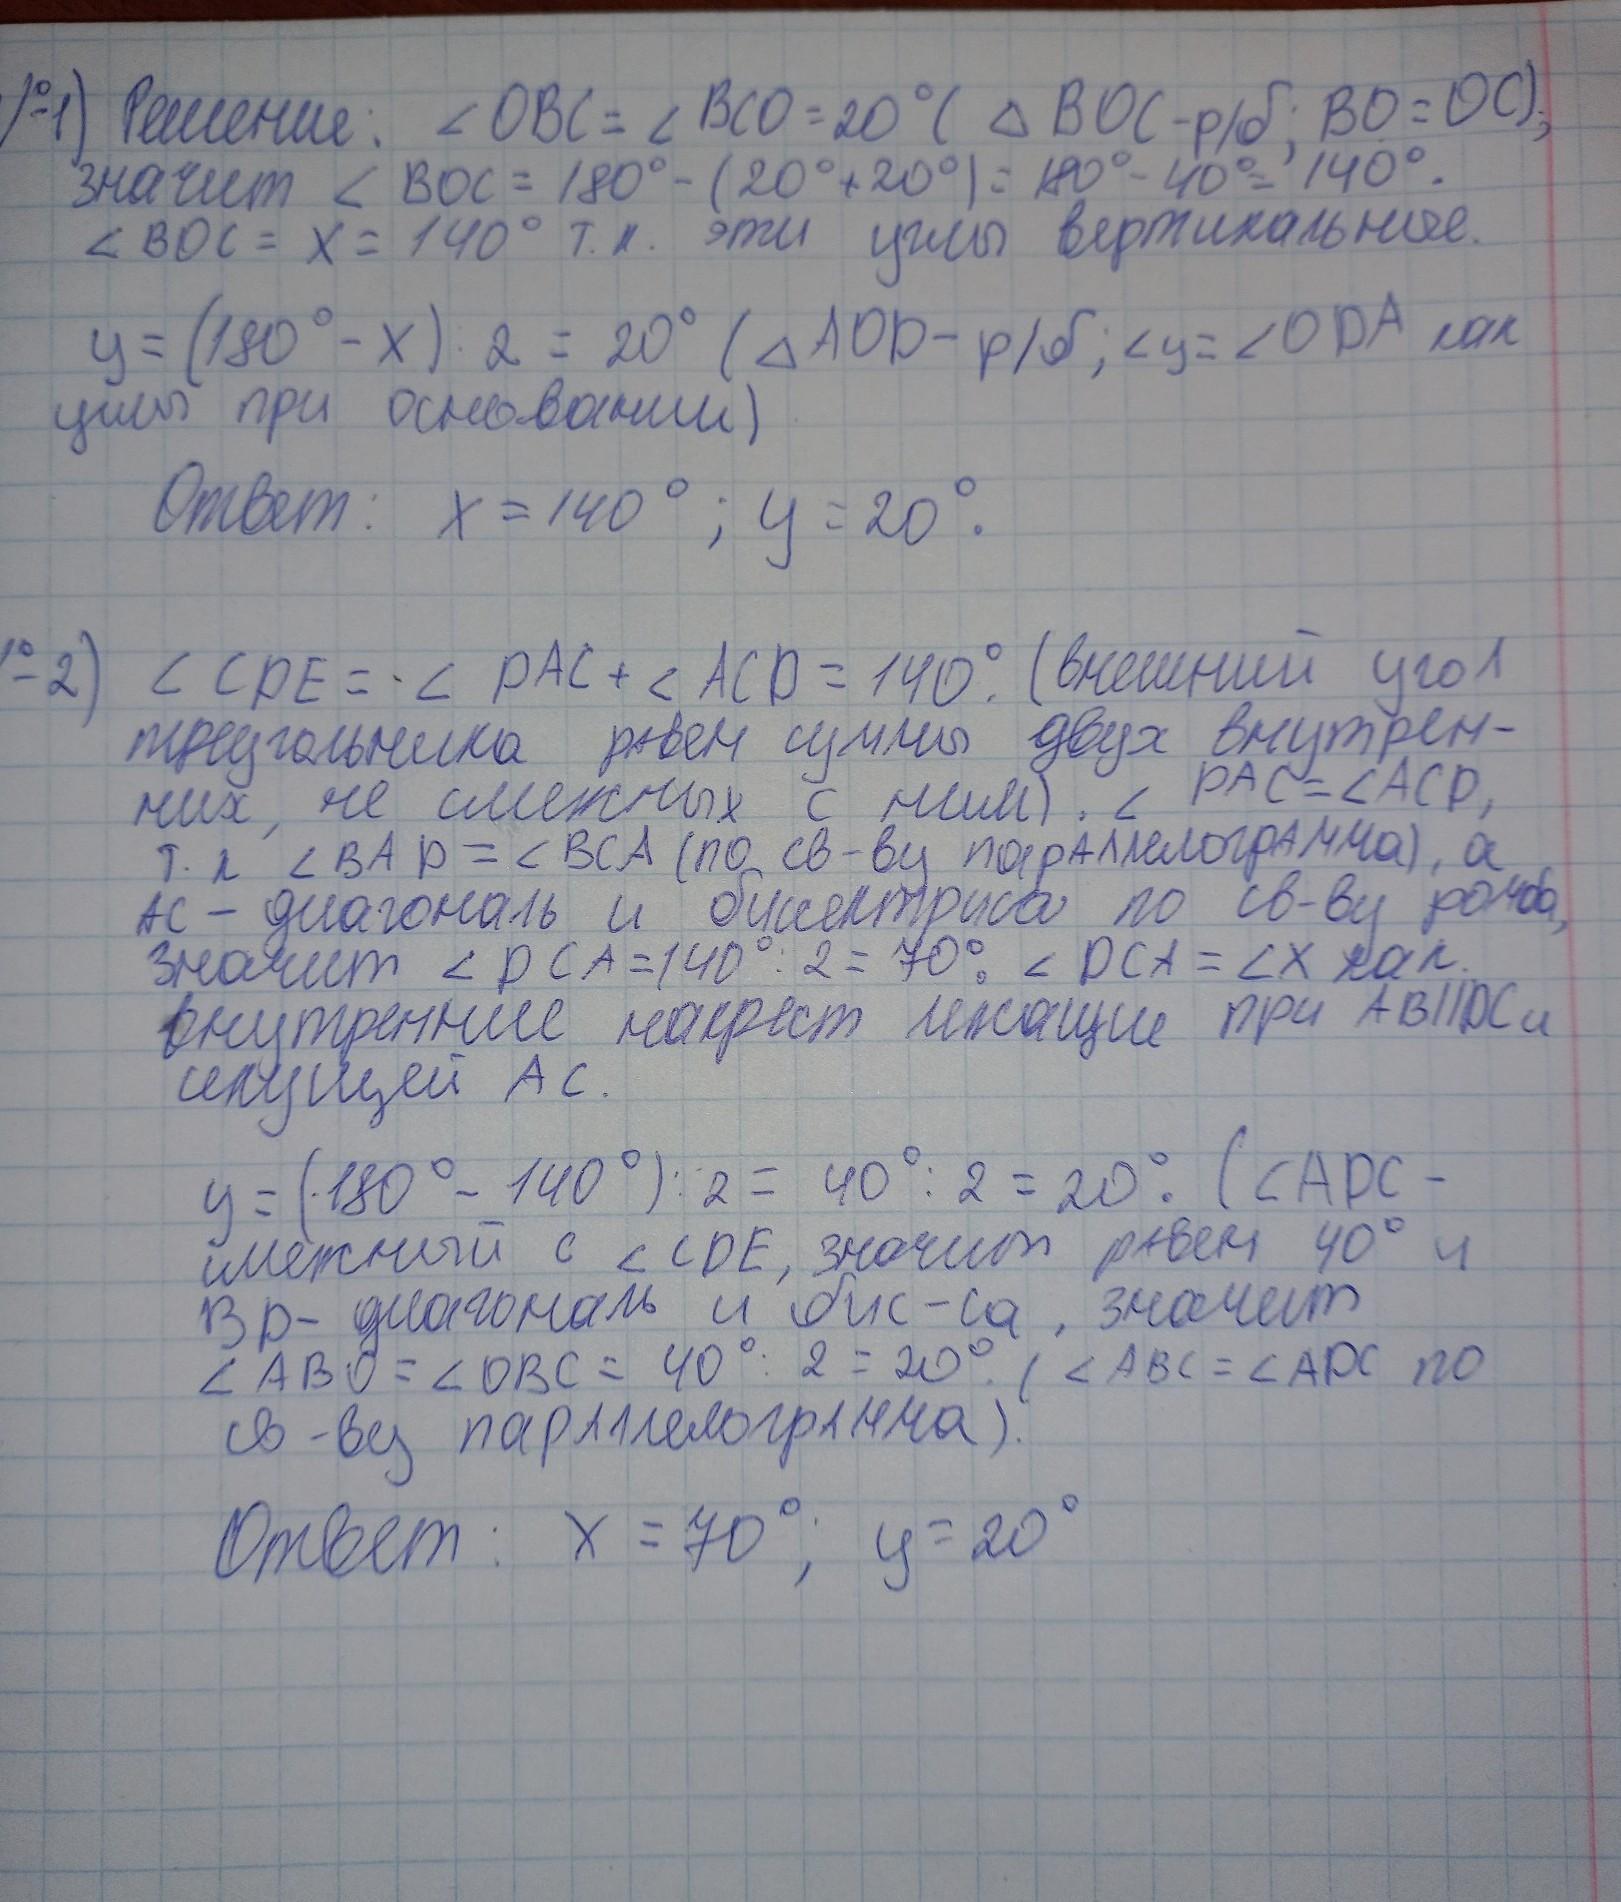 №1) Решение: ∠OBC = ∠BCO = 20° ( △ BOC - р/б; BO = OC);
значит ∠ BOC = 180° - (20° + 20°) = 180° - 40° = 140°.
∠BOC = x = 140° т.к. эти углы вертикальные.
y = (180° - x) : 2 = 20° ( △AOD - р/б; ∠y = ∠ODA как
углы при основании)
Ответ: x = 140°; y = 20°.
№2) ∠ CDE = ∠ DAC + ∠ ACD = 140°. (внешний угол
треугольника равен суммы двух внутрен-
них, не смежных с ним). ∠ DAC = ∠ACD,
т.к ∠BAD = ∠BCA (по св-ву параллелограмма), а
AC - диагональ и биссектриса по св-ву ромба,
значит ∠DCA = 140° : 2 = 70°. ∠DCA = ∠X как.
внутренние накрест лежащие при AB||DC и
секущей AC.
y = (180° - 140°) : 2 = 40° : 2 = 20°. (∠ADC -
смежный с ∠CDE, значит равен 40° и
BD - диагональ и бис-са, значит
∠ABO = ∠OBC = 40° : 2 = 20°. (∠ABC = ∠ADC по
св-ву параллелограмма).
Ответ: x = 70°; y = 20°